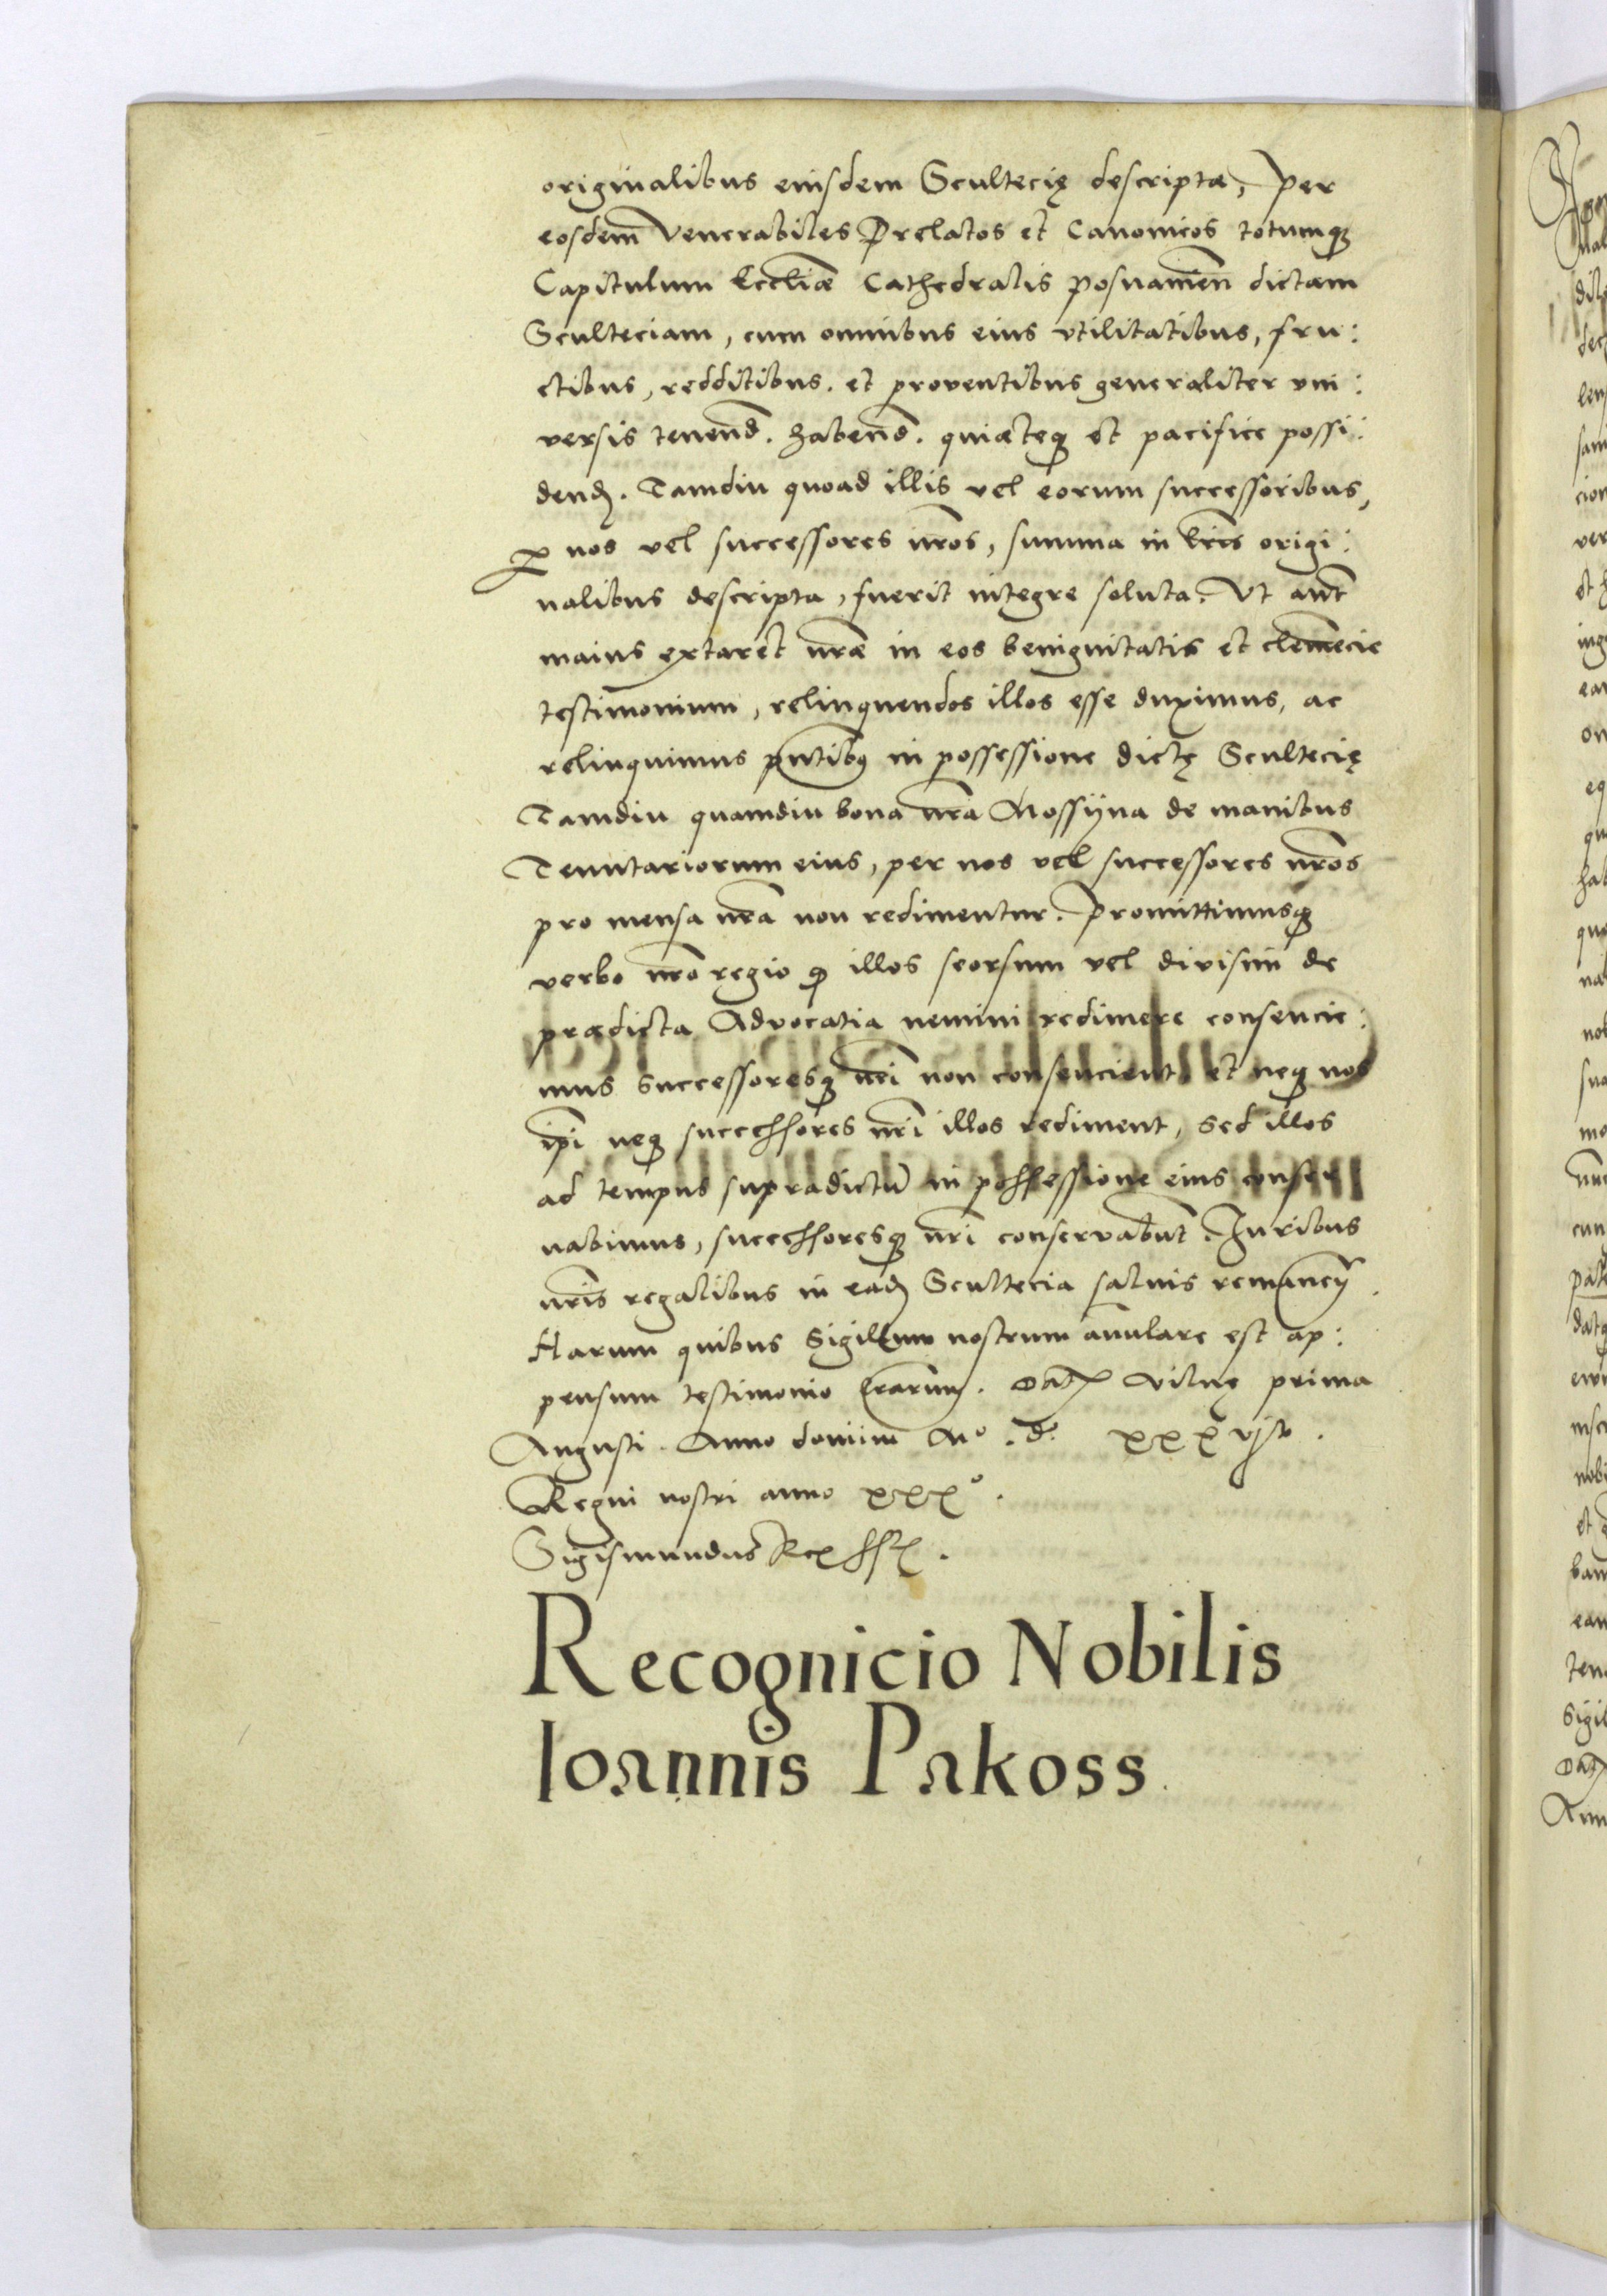 originalibus eiusdem Scultecię descripta, per
eosdem̄ Venerabiles Prelatos et Canonicos totumqꝫ
Capitulum Eccl̄iæ Cathedralis Posnanien̄ dictam
Sculteciam, cum omnibus eius vtilitatibus, fru:
ctibus, redditibus. et proventibus generaliter vni:
versis tenend̄. habend̄. quieteqꝫ et pacifice possi:
dend. Tamdiu quoad illis vel eorum successoribus,
ꝑ nos vel successores nr̄os, summa in lr̄is origi:
nalibus descripta, fuerit integre soluta. Vt aut̄
maius extaret nr̄æ in eos benignitatis et clemēcie
testimonium, relinquendos illos esse duximus, ac
relinquimus pn̄tibꝫ in possessione dictę Scultecię
Tamdiu quamdiu bona nr̄a Mossijna de manibus
Tenutariorum eius, per nos vel successores nr̄os
pro mensa nr̄a non redimentur. Promittimusqꝫ
verbo nr̄o regio qꝫ illos seorsum vel divisim de
prædicta Advocatia nemini redimere consencie:
mus successoresqꝫ nr̄i non consencient, et neqꝫ nos
ip̄i neqꝫ successores nr̄i illos rediment, sed illos
ad tempus supradictū in possessione eius conser
uabimus, successoresqꝫ nr̄i conservabūt. Iuribus
nr̄is regalibus in ead Scultecia saluis remanen̄.
Harum quibus Sigillum nostrum anulare est ap:
pensum testimonio lr̄arum. Dat̄ Vilnę prima
Augusti. Anno domini Mº. d. xxxvjto.
Regni nostri anno xxxº.
Sigismundus Rex sst.
Recognicio Nobilis
Ioannis Pakoss.